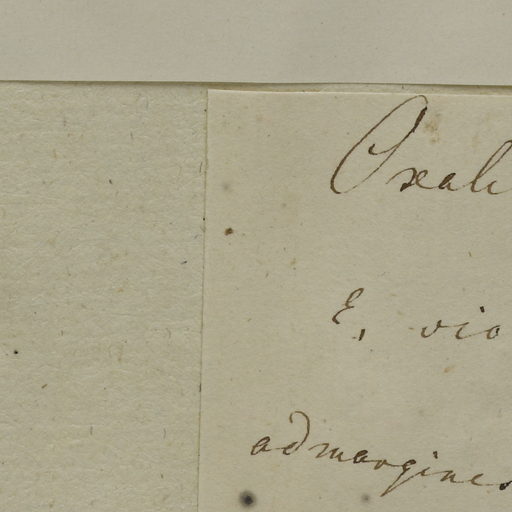 Oxali
E, vio
ad margines